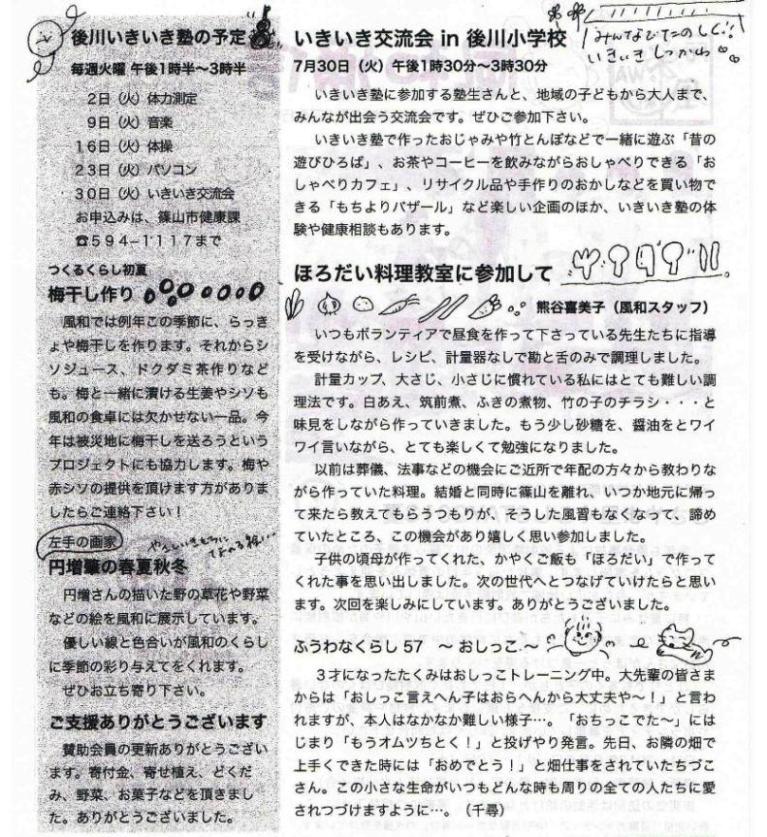 後川いきいき塾の予定
毎週火曜 午後1時半〜3時半
2日（火）体力測定
9日（火）音楽
16日（火）体操
23日（火）パソコン
30日（火）いきいき交流会
お申込みは、篠山市健康課
☎594-1117まで
つくるくらし初夏
梅干し作り
風和では例年この季節に、らっき
ょや梅干しを作ります。それからシ
ソジュース、ドクダミ茶作りなど
も。梅と一緒に漬ける生姜やシソも
風和の食卓には欠かせない一品。今
年は被災地に梅干しを送ろうという
プロジェクトにも協力します。梅や
赤シソの提供を頂けます方がありま
したらご連絡下さい！
左手の画家
円増肇の春夏秋冬
円増さんの描いた野の草花や野菜
などの絵を風和に展示しています。
優しい線と色合いが風和のくらし
に季節の彩り与えてをくれます。
ぜひお立ち寄り下さい。
ご支援ありがとうございます
賛助会員の更新ありがとうござい
ます。寄付金、寄せ植え、どくだ
み、野菜、お菓子などを頂きまし
た。ありがとうございました。
いきいき交流会 in 後川小学校
みんなおいでたのしく！！
いきいきしつかわ
7月30日（火）午後1時30分〜3時30分
いきいき塾に参加する塾生さんと、地域の子どもから大人まで、
みんなが出会う交流会です。ぜひご参加下さい。
いきいき塾で作ったおじゃみや竹とんぼなどで一緒に遊ぶ「昔の
遊びひろば」、お茶やコーヒーを飲みながらおしゃべりできる「お
しゃべりカフェ」、リサイクル品や手作りのおかしなどを買い物で
きる「もちよりバザール」など楽しい企画のほか、いきいき塾の体
験や健康相談もあります。
ほろだい料理教室に参加して
熊谷喜美子（風和スタッフ）
いつもボランティアで昼食を作って下さっている先生たちに指導
を受けながら、レシピ、計量器なしで勘と舌のみで調理しました。
計量カップ、大さじ、小さじに慣れている私にはとても難しい調
理法です。白あえ、筑前煮、ふきの煮物、竹の子のチラシ・・・と
味見をしながら作っていきました。もう少し砂糖を、醤油をとワイ
ワイ言いながら、とても楽しくて勉強になりました。
以前は葬儀、法事などの機会にご近所で年配の方々から教わりな
がら作っていた料理。結婚と同時に篠山を離れ、いつか地元に帰っ
て来たら教えてもらうつもりが、そうした風習もなくなって、諦め
ていたところ、この機会があり嬉しく思い参加しました。
子供の頃母が作ってくれた、かやくご飯も「ほろだい」で作って
くれた事を思い出しました。次の世代へとつなげていけたらと思い
ます。次回を楽しみにしています。ありがとうございました。
ふうわなくらし57 〜 おしっこ 〜
３才になったたくみはおしっこトレーニング中。大先輩の皆さま
からは「おしっこ言えへん子はおらへんから大丈夫や〜！」と言わ
れますが、本人はなかなか難しい様子…。「おちっこでた〜」には
じまり「もうオムツちとく！」と投げやり発言。先日、お隣の畑で
上手くできた時には「おめでとう！」と畑仕事をされていたちづこ
さん。この小さな生命がいつもどんな時も周りの全ての人たちに愛
されつづけますように…。（千尋）